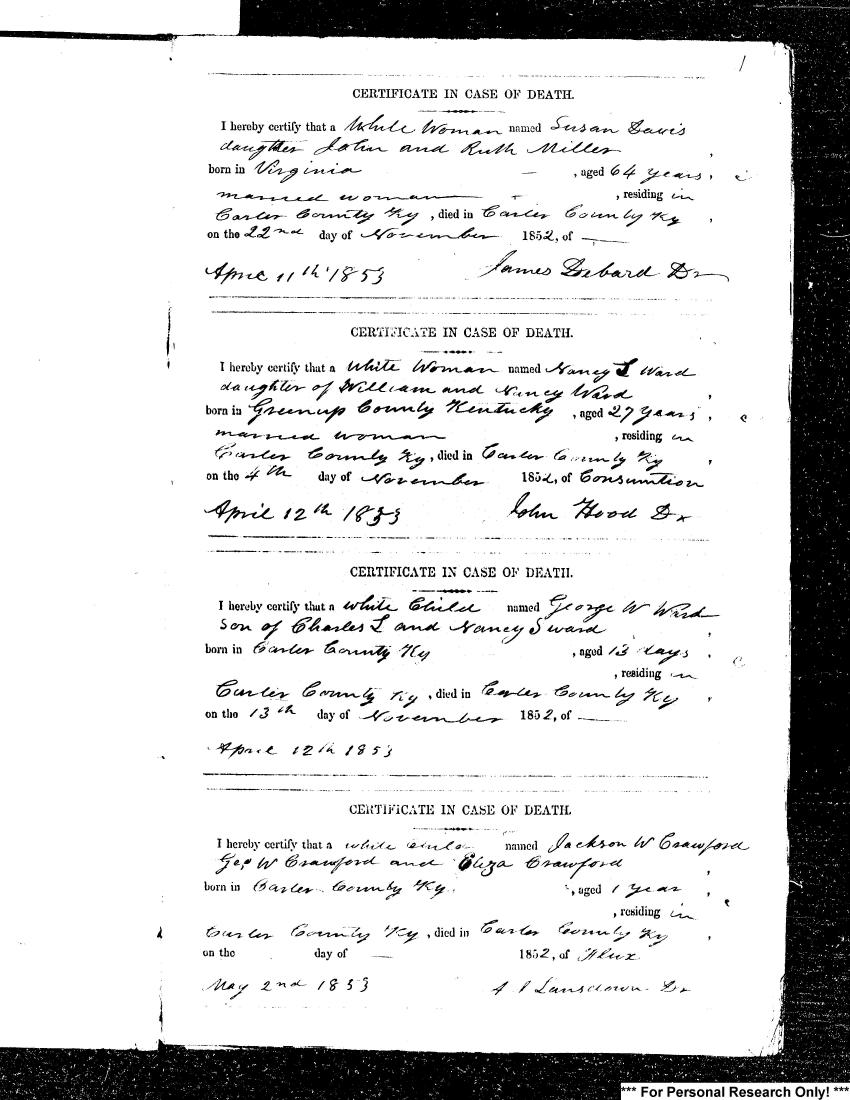 1
CERTIFICATE IN CASE OF DEATH.
I hereby certify that a White Woman named Susan Davis
daughter John and Ruth Miller ,
born in Virginia — , aged 64 years ,
married woman , residing in
Carter County Ky , died in Carter County Ky ,
on the 22nd day of November 1852, of —
April 11th 1853 James Debard Dr
CERTIFICATE IN CASE OF DEATH.
I hereby certify that a White Woman named Nancy L Ward
daughter of William and Nancy Ward ,
born in Greenup County Kentucky , aged 27 years ,
married woman , residing in
Carter County Ky, died in Carter County Ky ,
on the 4th day of November 1852, of Consumtion
April 12th 1853 John Hood Dr
CERTIFICATE IN CASE OF DEATH.
I hereby certify that a white Child named George W Ward
son of Charles L and Nancy S Ward ,
born in Carter County Ky , aged 13 days ,
, residing in
Carter County Ky , died in Carter County Ky ,
on the 13th day of November 1852, of —
April 12th 1853
CERTIFICATE IN CASE OF DEATH.
I hereby certify that a white child named Jackson W Crawford
Geo W Crawford and Eliza Crawford ,
born in Carter County Ky. , aged 1 year ,
, residing in
Carter County Ky , died in Carter County Ky ,
on the day of — 1852, of Flux
May 2nd 1853 Lansdown Dr
*** For Personal Research Only! ***